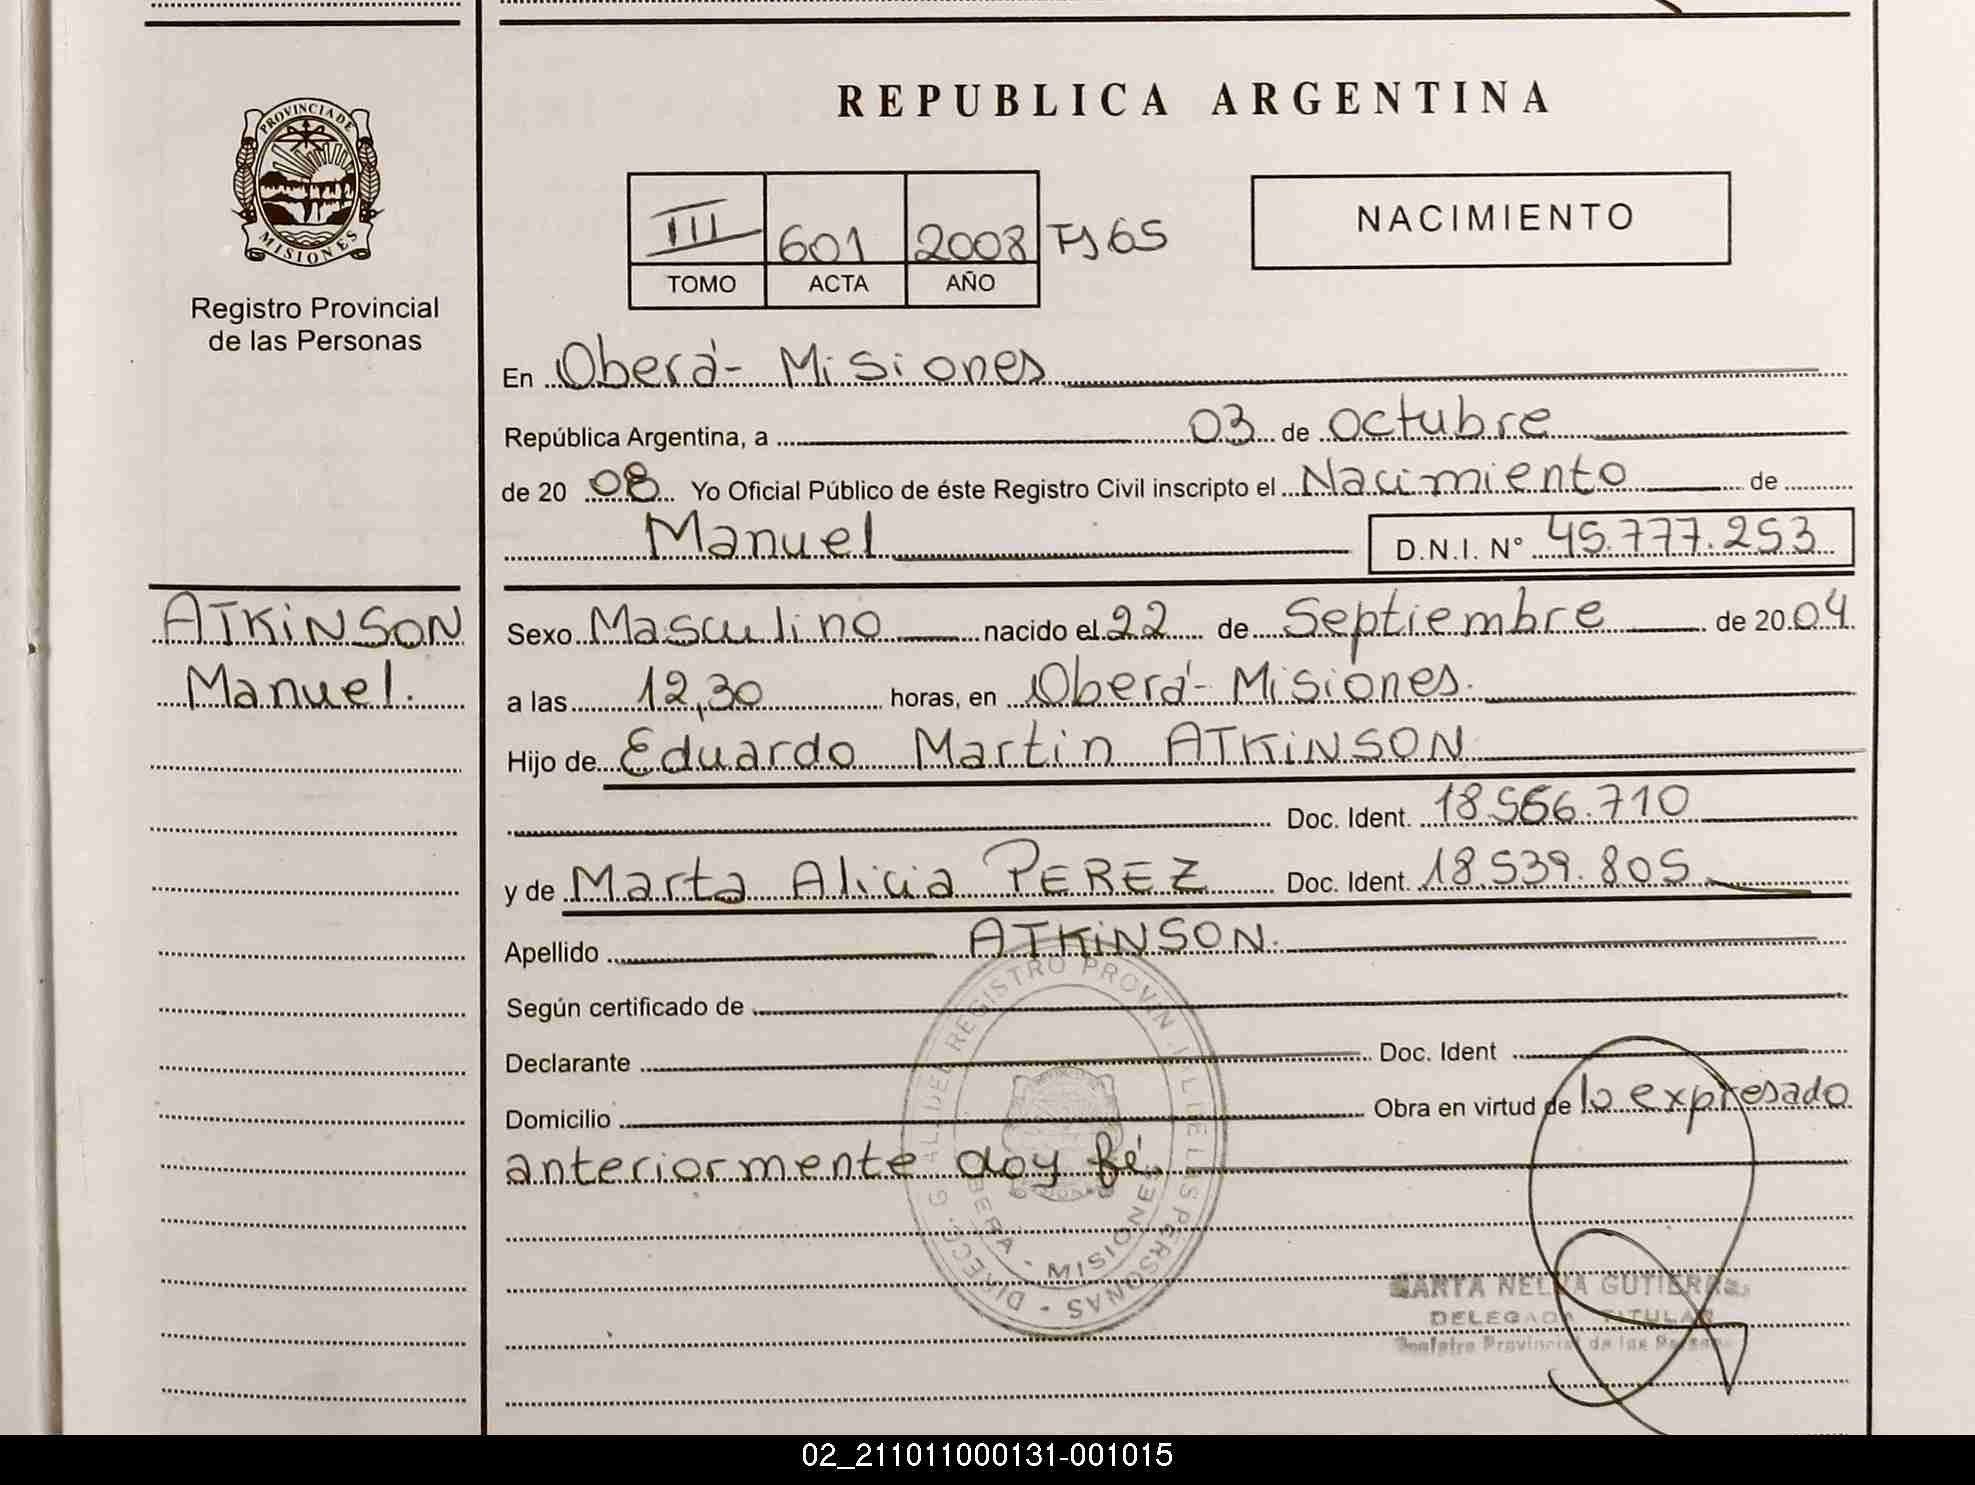 REPUBLICA ARGENTINA
PROVINCIA DE MISIONES
Registro Provincial
de las Personas
III 601 2008 Fj 65
TOMO ACTA AÑO
NACIMIENTO
En Oberá - Misiones
República Argentina, a 03 de octubre
de 20 08 Yo Oficial Público de éste Registro Civil inscripto el Nacimiento de
Manuel D.N.I. N° 45.777.253
ATKINSON
Manuel.
Sexo Masculino nacido el 22 de Septiembre de 20 04
a las 12,30 horas, en Oberá - Misiones.
Hijo de Eduardo Martin ATKINSON
Doc. Ident. 18.566.710
y de Marta Alicia PEREZ Doc. Ident. 18.539.805
Apellido ATKINSON.
Según certificado de
Declarante Doc. Ident
Domicilio Obra en virtud de lo expresado
anteriormente doy fé.
DIRECC. GRAL DEL REGISTRO PROVINCIAL DE LAS PERSONAS
OBERA - MISIONES
MARTA NELIDA GUTIERREZ
DELEGADA TITULAR
Registro Provincial de las Personas
02_211011000131-001015